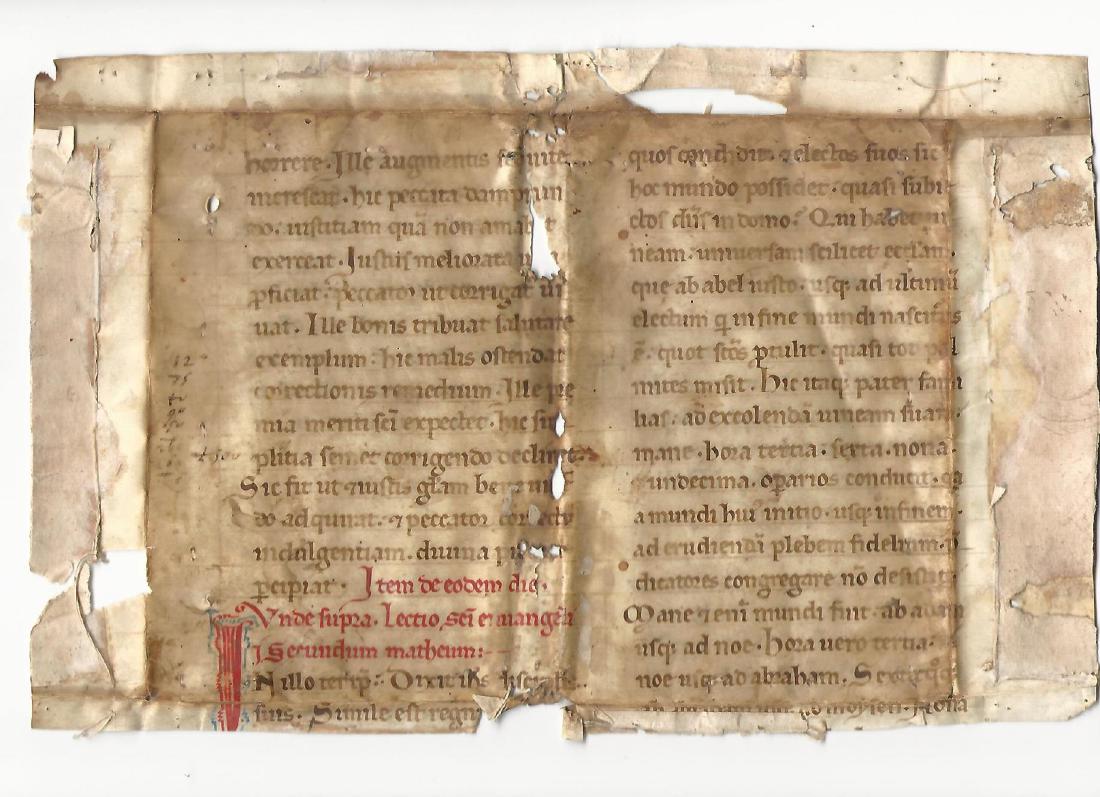 horrere. Ille augmentis
increscat. hic peccata dampnan
do. iusticiam quā non amauit
exerceat. Iustus meliorata
ꝓficiat. peccator ut corrigat ui
uat. Ille bonis tribuat salutare
exemplum. hic malis ostendat
correctionis remedium. Ille pre
mia meriti sc̄i expectet. hic su
plicia semet corrigendo declinet.
Sic fit ut ⁊ iustis glām
do adquirat. ⁊ peccator
indulgentiam. diuina
percipiat. Item de eodem die.
Vnde supra. Lectio sc̄i euangelii
Secundum matheum:
In illo temp̄. Dixit ih̄s
suis. Simile est regnū
quos condidit. ⁊ electos suos sic
hoc mundo possidet. quasi subie
ctos dn̄s in domo. Qui habet ui
neam. uniuersam scilicet eccl̄am.
que ab abel iusto. usq; ad ultimū
electum q̄ in fine mundi nasciturus
ē. quot sc̄os ꝓtulit. quasi tot pal
mites misit. Hic itaq; pater fami
lias. ad excolendā uineam suam.
mane. hora tercia. sexta. nona.
⁊ undecima. oꝑarios conducit. q̄a
a mundi hui᾿ initio. usq; in finem.
ad erudiendā plebem fidelium. p̄
dicatores congregare nō desistit.
Mane ⁊enī mundi fuit. ab adam
usq; ad noe. Hora uero tercia.
noe usq; ad abraham. Sexta q̊q̊
moysen. Nona